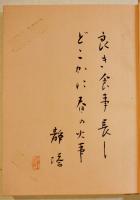 良き食事長し
どこかに春の火事
静塔